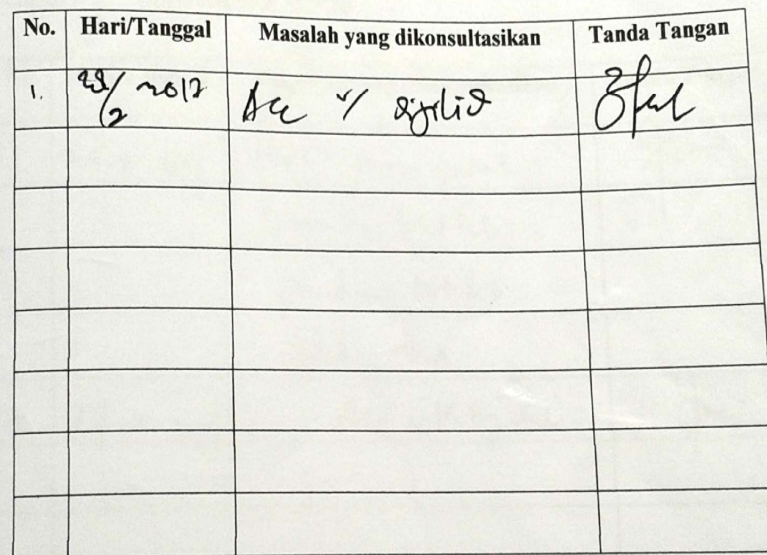 No. Hari/Tanggal Masalah yang dikonsultasikan Tanda Tangan
1. /2 2017 Acc u/ dijilid